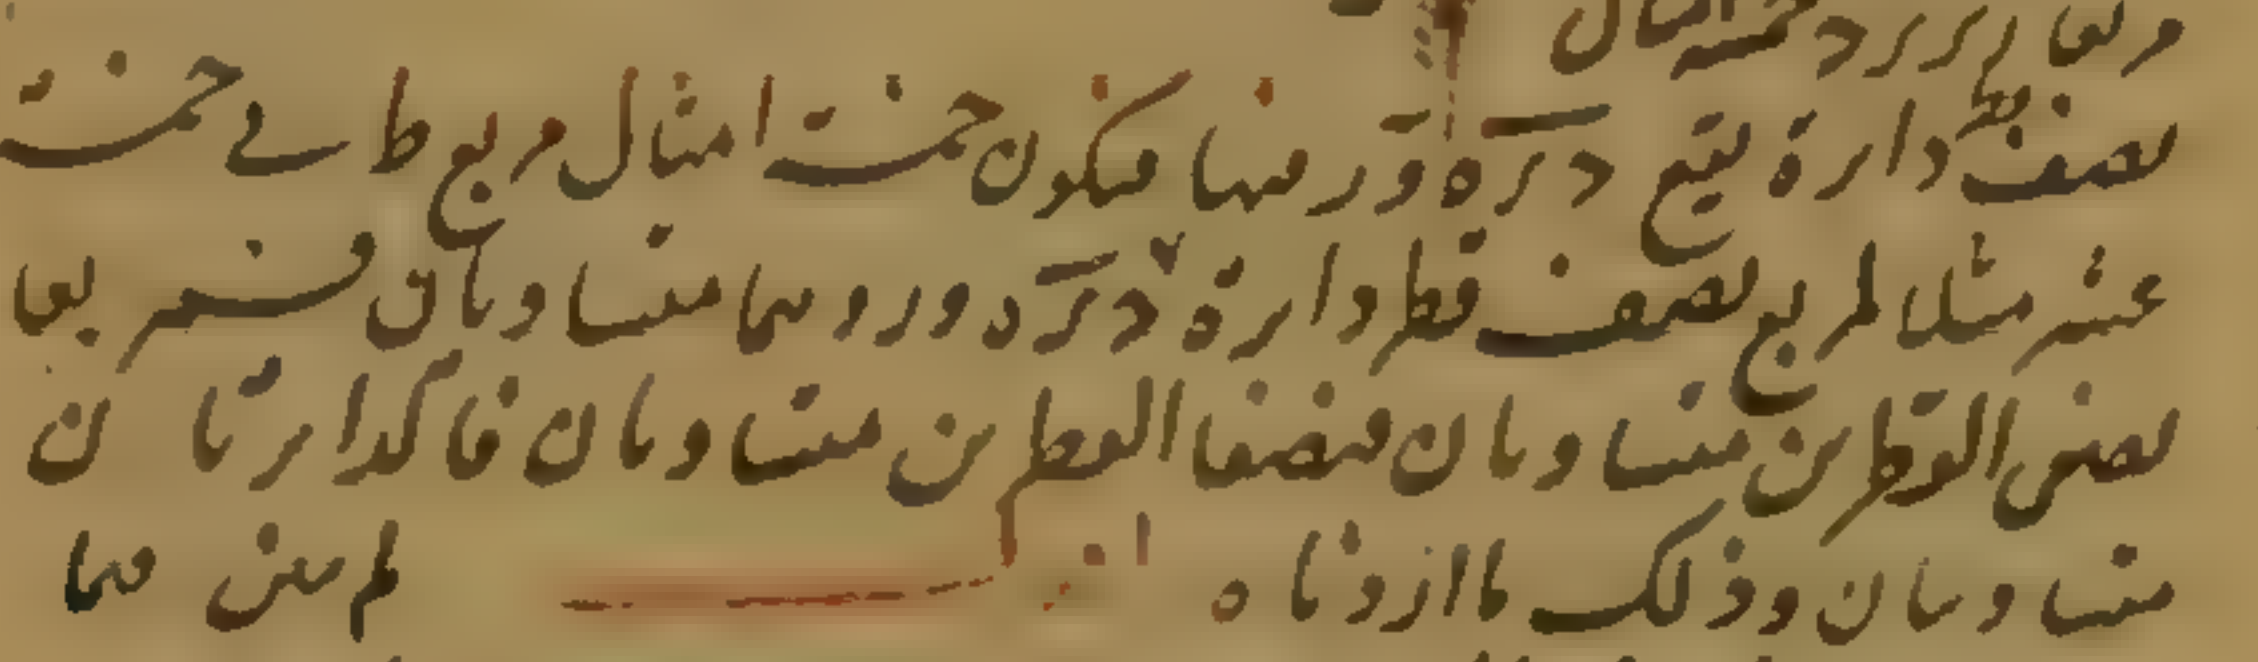 مربعا ا ر ر د خمسة امثال
نصف قطر دائرة يقع د ر ه ور منها فيكون خمسة امثال مربع ط ا في خمسة
عشر مثلا لمربع نصف قطر دائرة د ر ه د ور وهما متساويان فمربعا
نصفى القطرين متساويان فنصفا القطرين متساويان فالدائرتان
متساويان وذلك ما اردناه لم يبين فيما